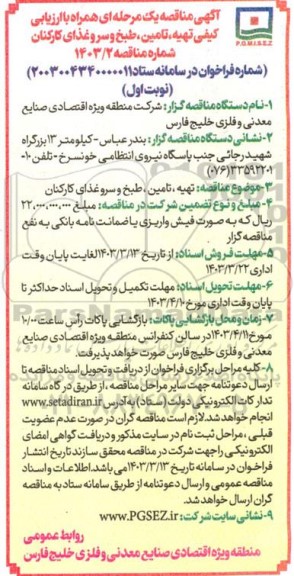 P.G.M.I.S.E.Z
آگهی مناقصه یک مرحله ای همراه با ارزیابی
کیفی تهیه، تامین، طبخ و سرو غذای کارکنان
شماره مناقصه ۱۴۰۳/۲
(شماره فراخوان در سامانه ستاد ۲۰۰۳۰۰۴۳۴۰۰۰۰۰۱۱)
(نوبت اول)
۱-نام دستگاه مناقصه گزار: شرکت منطقه ویژه اقتصادی صنایع
معدنی و فلزی خلیج فارس
۲-نشانی دستگاه مناقصه گزار: بندر عباس- کیلومتر ۱۳ بزرگراه
شهید رجائی جنب پاسگاه نیروی انتظامی خونسرخ - تلفن ۱۰-
(۰۷۶)۳۳۵۹۲۲۰۱
۳-موضوع مناقصه: تهیه، تامین، طبخ و سرو غذای کارکنان
۴-مبلغ و نوع تضمین شرکت در مناقصه: مبلغ ۲۲,۰۰۰,۰۰۰,۰۰۰
ریال که به صورت فیش واریزی یا ضمانت نامه بانکی به نفع
مناقصه گزار
۵-مهلت فروش اسناد: از تاریخ ۱۴۰۳/۳/۱۳ لغایت پایان وقت
اداری ۱۴۰۳/۳/۲۲
۶-مهلت تحویل اسناد: مهلت تکمیل و تحویل اسناد حداکثر تا
پایان وقت اداری مورخ ۱۴۰۳/۴/۱۰
۷-زمان و محل بازگشایی پاکات: بازگشایی پاکات راس ساعت ۱۰/۰۰
مورخ ۱۴۰۳/۴/۱۱ در سالن کنفرانس منطقه ویژه اقتصادی صنایع
معدنی و فلزی خلیج فارس صورت خواهد پذیرفت.
۸-کلیه مراحل برگزاری فراخوان از دریافت و تحویل اسناد مناقصه تا
ارسال دعوتنامه جهت سایر مراحل مناقصه، از طریق درگاه سامانه
تدارکات الکترونیکی دولت (ستاد) به آدرس www.setadiran.ir
انجام خواهد شد. لازم است مناقصه گران در صورت عدم عضویت
قبلی، مراحل ثبت نام در سایت مذکور و دریافت گواهی امضای
الکترونیکی را جهت شرکت در مناقصه محقق سازند تاریخ انتشار
فراخوان در سامانه تاریخ ۱۴۰۳/۳/۱۳ می باشد. اطلاعات و اسناد
مناقصه عمومی و ارسال دعوتنامه از طریق سامانه ستاد به مناقصه
گران ارسال خواهد شد.
۹-نشانی سایت شرکت: www.PGSEZ.ir
روابط عمومی
منطقه ویژه اقتصادی صنایع معدنی و فلزی خلیج فارس